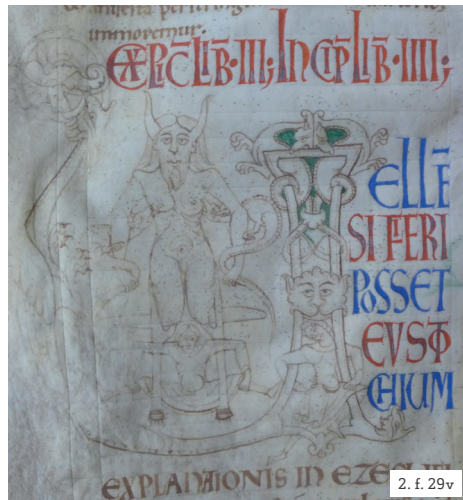 EXPLIC̄ LIB̄·III; INCIP̄ LIB̄·IIII;
ELLĒ
SI FIERI
POSSET
EVSTO
CHIUM
EXPLANATIONIS IN
2. f. 29v